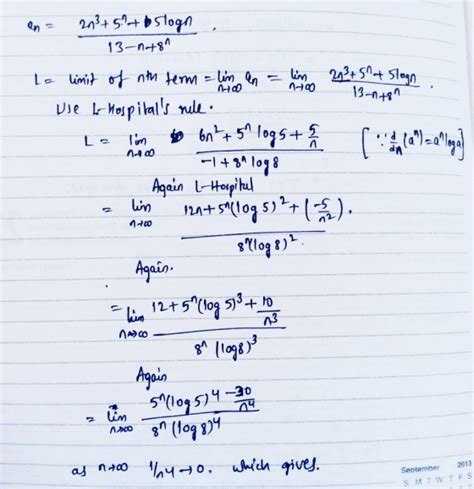 aₙ = (2n³ + 5ⁿ + 5logn) / (13 - n + 8ⁿ) .
L = limit of nth term = lim n→∞ aₙ = lim n→∞ (2n³ + 5ⁿ + 5logn) / (13 - n + 8ⁿ) .
Use L-Hospital's rule.
L = lim n→∞ (6n² + 5ⁿ log5 + 5/n) / (-1 + 8ⁿ log8) [∵ d/dn (aⁿ) = aⁿ loga]
Again L-Hospital
= lim n→∞ (12n + 5ⁿ(log5)² + (-5/n²)) / (8ⁿ(log8)²) .
Again.
= lim n→∞ (12 + 5ⁿ(log5)³ + 10/n³) / (8ⁿ (log8)³)
Again
= lim n→∞ (5ⁿ(log5)⁴ - 30/n⁴) / (8ⁿ (log8)⁴)
as n→∞ 1/n⁴ → 0. which gives.
September 2013
S M T W T F S